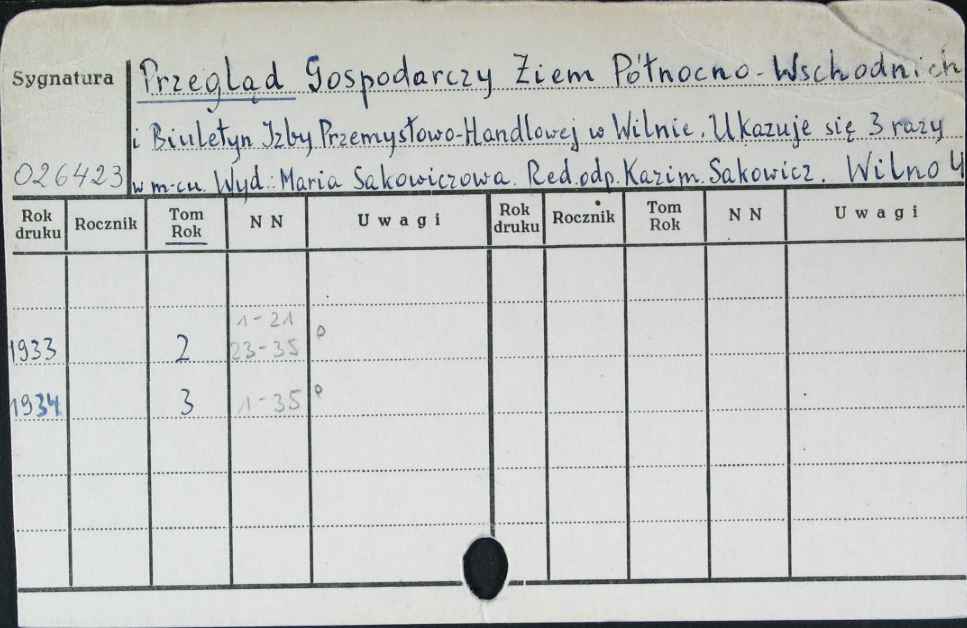 Sygnatura
Przegląd Gospodarczy Ziem Północno-Wschodnich
i Biuletyn Izby Przemysłowo-Handlowej w Wilnie. Ukazuje się 3 razy
026423 w m-cu. Wyd.: Maria Sakowiczowa. Red. odp. Kazim. Sakowicz. Wilno 4
Rok druku Rocznik Tom Rok NN Uwagi Rok druku Rocznik Tom Rok NN Uwagi
1-21
1933 2 23-35
1934 3 1-35